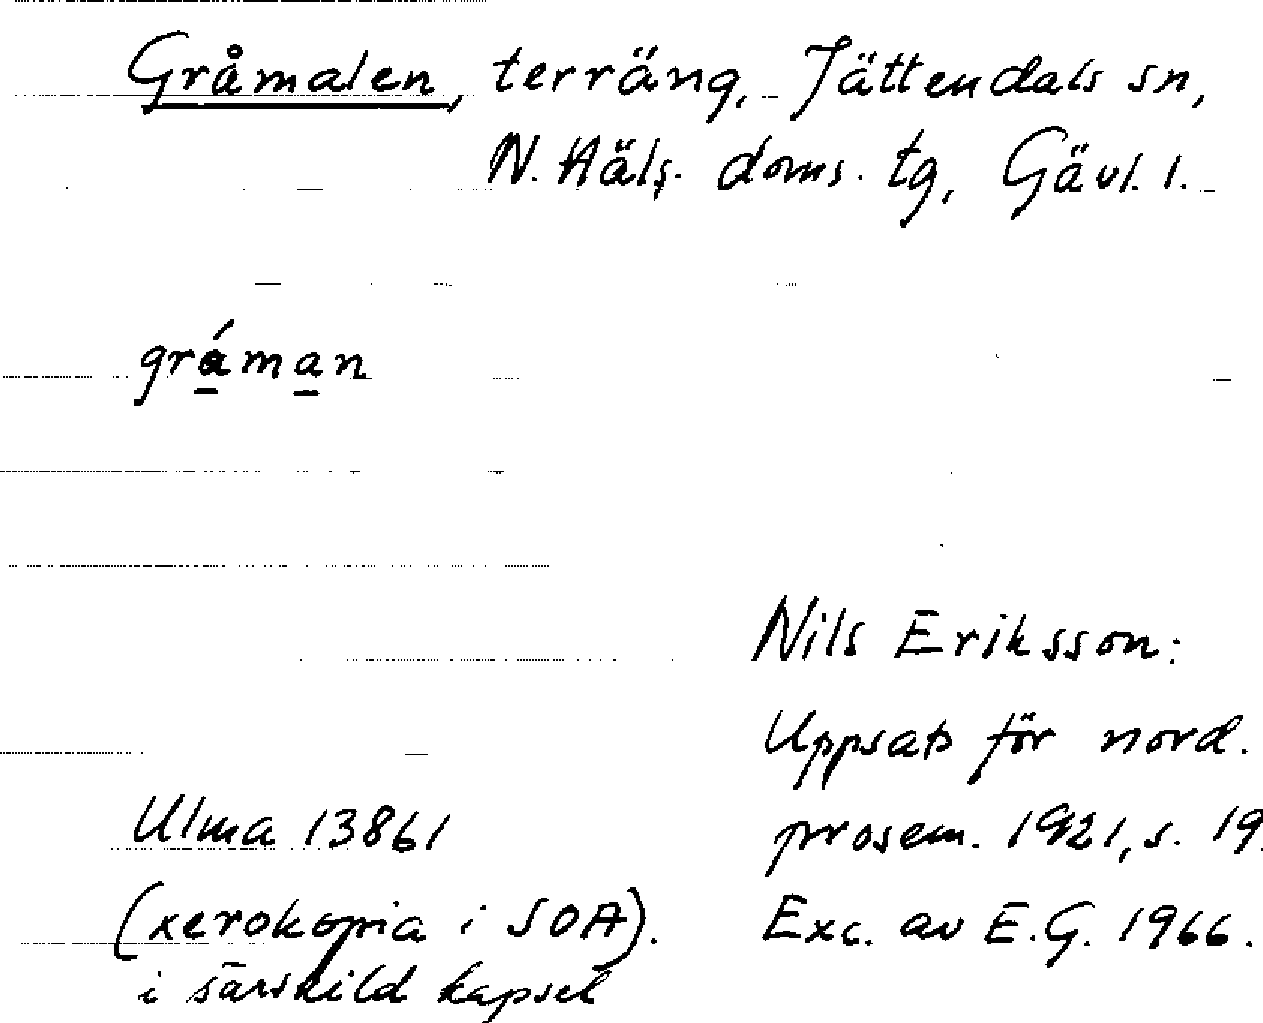 Gråmalen, terräng, Jättendals sn,
N. Häls. doms. tg, Gävl. l.
gráman
Nils Eriksson:
Uppsats för nord.
Ulma 13861 prosem. 1921, s. 19.
(xerokopia i SOA). Exc. av E.G. 1966.
i särskild kapsel